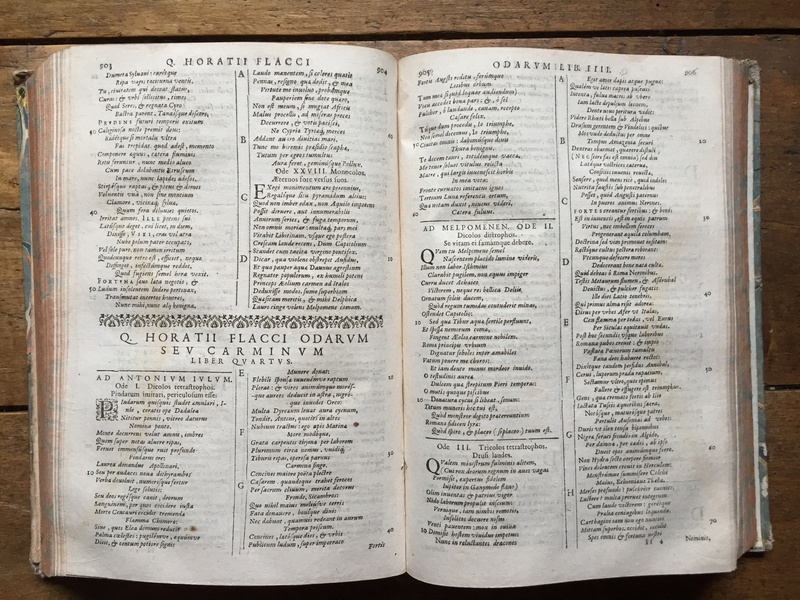 503
Q. HORATII FLACCI
904
Dumeta Sylvani: caretque
Ripa vagis taciturna ventis.
Tu, civitatem qui deceat statum,
Curas: & urbi sollicitus, times
Quid Seres, & regnata Cyro
Bactra parent, Tanaisque discors.
PRUDENS futuri temporis exitum
Caliginosa nocte premit deus:
Ridetque si mortalis ultra
Fas trepidat. quod adest, memento
Componere aquus, cetera fluminis
Cum pace delabentis Etruscum
In mare, nunc lapides adesos,
Stirpesque raptas, & pecus & domos
Volventis una, non sine montium
Clamore, vicinaque silvæ,
Quum fera diluvies quietos
Irritat amnes. ILLE potens sui
Lætusque deget, cui licet, in diem,
Dixisse, VIXI, cras vel atra
Nube polum pater occupato,
Vel sole puro. non tamen irritum
Quodcunque retro est, efficiet, neque
Diffinget, infectumque reddet,
Quod fugiens semel hora vexit.
FORTUNA sævo læta negotio, &
50 Ludum insolentem ludere pertinax,
Transmutat incertos honores,
Nunc mihi, nunc alij benigna.
A
Laudo manentem, si celeres quatit
Pennas, resigno quæ dedit, & mea
Virtute me involvo, probamque
Pauperiem sine dote quæro.
Non est meum, si mugiat Africis
Malus procellis, ad miseras preces
Decurrere, & votis pacisci,
Ne Cypriæ Tyriæque merces
B
Addant avaro divitias mari.
Tunc me biremis præsidio scaphæ,
Tutum per Ægeos tumultus
Aura feret, geminusque Pollux.
Ode XXVIII. Monocolos.
Æternos fore versus suos.
Exegi monumentum ære perennius,
Regalique situ pyramidum altius:
C
Quod non imber edax, non Aquilo impotens
Possit diruere, aut innumerabilis
Annorum series, & fuga temporum.
Non omnis moriar: multaque pars mei
Vitabit Libitinam. usque ego postera
Crescam laude recens, Dum Capitolium
Scandet cum tacita virgine pontifex.
D
Dicar, qua violens obstrepit Aufidus,
Et qua pauper aquæ Daunus agrestium
Regnator populorum, ex humili potens
Princeps Æolium carmen ad Italos
Deduxisse modos. sume superbiam
Quæsitam meritis, & mihi Delphica
Lauro cinge volens Melpomene comam.
Q. HORATII FLACCI ODARVM
SEV CARMINVM
LIBER QVARTVS.
AD ANTONIVM IVLVM.
Ode I. Dicolos tetrastrophos.
Pindarum imitari, periculosum esse.
Pindarum quisquis studet æmulari, I-
ule, ceratis ope Dædalea
Nititur pennis, vitreo daturus
Nomina ponto.
Monte decurrens velut amnis, imbres
Quem super notas aluere ripas,
Fervet immensusque ruit profundo
Pindarus ore:
Laurea donandus Apollinari,
10 Seu per audaces nova dithyrambos
Verba devolvit, numerisque fertur
Lege solutis:
Seu deos regésque canit, deorum
Sanguinem, per quos cecidere justa
Morte Centauri cecidit tremendæ
Flamma Chimæræ:
Sive, quos Elea domum reducit
Palma cælestes: pugilémve, equúmve
Dicit, & centum potiore signis
E
Munere donat:
Flebili sponsæ iuvenémve raptum
Plorat: & vires animúmque moresque
aureos educit in astra, nigroque
invidet Orco:
Multa Dircæum levat aura cycnum,
Tendit, Antoni, quoties in altos
F
Nubium tractus: ego apis Matinæ
More modóque,
Grata carpentis thyma per laborem
Plurimum circa nemus, uvidíque
Tiburis ripas, operosa parvus
Carmina fingo.
Concines maiore poëta plectro
Cæsarem, quandoque trahet feroces
G
Per sacrum clivum, merita decorus
Fronde, Sicambros:
Quo nihil maius meliúsve terris
Fata donavere, bonique divi:
Nec dabunt, quamvis redeant in aurum
Tempora priscum.
Concines, lætósque dies, & urbis
Publicum ludum, super impetrato
Fortis
905
ODARVM LIB. IIII.
906
Fortis Augusti reditu, forúmque
Litibus orbum.
Tum meæ (si quid loquar audiendum)
Vocis accedet bona pars: &, ô sol
Pulcher, ô laudande, canam, recepto
Cæsare felix.
Tuque dum procedis, io triumphe,
Non semel dicemus, io triumphe,
Civitas omnis: dabimúsque divis
Thura benignis.
Te decem tauri, totidémque vaccæ,
Me tener solvet vitulus, relicta
Matre, qui largis iuvenescit herbis
In mea vota:
Fronte curvatos imitatus ignes
Tertium Lunæ referentis ortum,
Qua notam duxit, niveus videri,
Cætera fulvus.
AD MELPOMENEN. ODE II.
Dicolos distrophos.
Se vitam ei famámque debere.
Quem tu Melpomene semel
Nascentem placido lumine videris,
Illum non labor Isthmius
Clarabit pugilem, non equus impiger
Curru ducet Achaico
Victorem, neque res bellica Deliis
Ornatum foliis ducem,
Quòd regum tumidas contuderit minas,
Ostendet Capitolio:
10 Sed quæ Tibur aquæ fertile perfluunt,
Et spissæ nemorum comæ,
Fingent Æolio carmine nobilem.
Romæ principis urbium
Dignatur soboles inter amabiles
Vatum ponere me choros:
Et iam dente minus mordeor invido.
O testudinis aureæ
Dulcem quæ strepitum Pieri temperas:
O mutis quoque piscibus
20 Donatura cycni, si libeat, sonum:
Totum muneris hoc tui est,
Quòd monstror digito prætereuntium
Romanæ fidicen lyræ:
Quòd spiro, & placeo (si placeo) tuum est.
Ode III. Tricolos tetrastrophos.
Drusi laudes.
Qualem ministrum fulminis alitem,
Cui rex deorum regnum in aves vagas
Permisit, expertus fidelem
Iupiter in Ganymede flavo)
Olim iuventas & patrius vigor
Nido laborum propulit inscium:
Vernique, iam nimbis remotis,
Insolitos docuere nisus
Venti paventem: mox in ovilia
10 Demisit hostem vividus impetus:
Nunc in reluctantes dracones
A
Egit amor dapis atque pugnæ:
Qualémve lætis caprea pascuis
Intenta, fulvæ matris ab ubere
Iam lacte depulsum leonem,
Dente novo peritura vidit:
Videre Rhæti bella sub Alpibus
Drusum gerentem & Vindelici: quibus
Mos unde deductus per omne
B
Tempus Amazonia securi
20
Dextras obarmet, quærere distuli:
(NEC scire fas est omnia) sed diu
Latéque victrices catervæ,
Consiliis iuvenis revictæ,
Sensere, quid mens rite, quid indoles
Nutrita faustis sub penetralibus
Posset, quid Augusti paternus
In pueros animus Nerones.
C
FORTES creantur fortibus: & bonis:
Est in iuvencis, est in equis patrum
30
Virtus, nec imbellem feroces
Progenerant aquilæ columbam,
Doctrina sed vim promovet insitam:
Rectíque cultus pectora roborant:
Vtcunque defecere mores
Dedecorant bene nata culpæ.
D
Quid debeas ô Roma Neronibus,
Testis Metaurum flumen, & Asdrubal
Devictus, & pulcher fugatis
Ille dies Latio tenebris,
40
Qui primus alma risit adorea:
Dirus per urbes Afer ut Italas,
Ceu flamma per tædas, vel Eurus
E
Per Siculas equitavit undas.
Post hoc secundis usque laboribus
Romana pubes crevit: & impio
Vastata Pœnorum tumultu
Fana deos habuere rectos:
Dixitque tandem perfidus Annibal,
Cervi, luporum præda rapacium,
50
F
Sectamur ultro, quos opimus
Fallere & effugere est triumphus.
Gens, quæ cremato fortis ab Ilio
Iactata Tuscis æquoribus sacra,
Natósque, maturósque patres
Pertulit Ausonias ad urbes:
Duris ut ilex tonsa bipennibus
G
Nigræ feraci frondis in Algido,
Per damna, per cædes, ab ipso
Ducit opes animúmque ferro.
60
Non Hydra secto corpore firmior
Vinci dolentem crevit in Herculem:
Monstrúmve summisere Colchi
Maius, Echioniæve Thebæ.
H
Merses profundo: pulchrior evenit:
Luctere: multa proruet integrum
Cum laude victorem: gerétque
Prælia coniugibus loquenda.
Carthagini iam non ego nuntios
Mittam superbos. occidit, occidit
70
Spes omnis & fortuna nostri
II 4
Nominis,